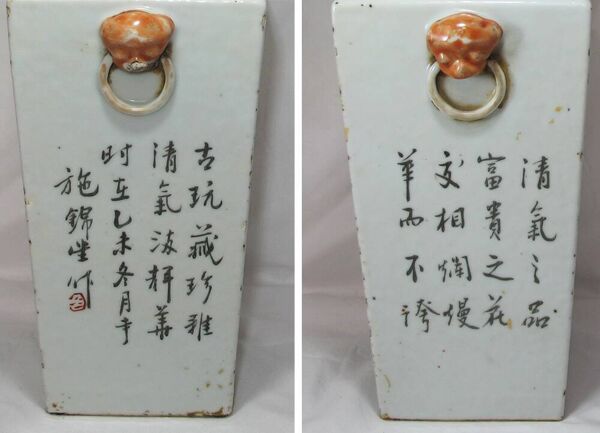 古玩藏珍雅
清氣海輝華
时在乙未冬月中
施錦堂作
清氣之品
富貴之花
交相爛熳
華而不誇